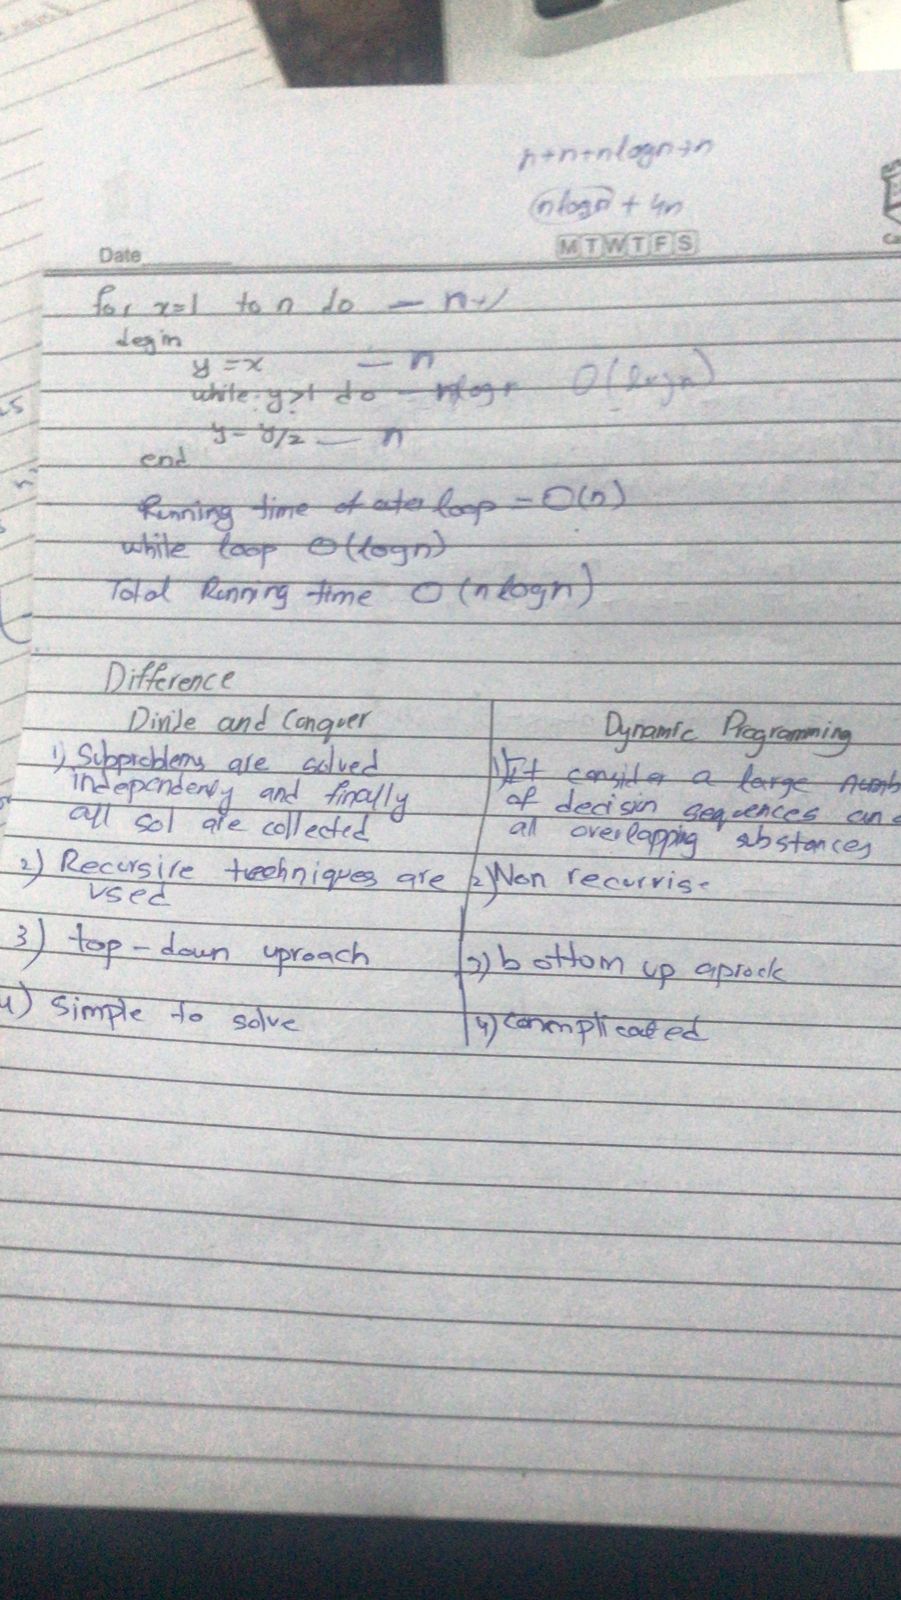 n+n+nlogn+n
nlogn + 4n
M T W T F S
Date
for x=1 to n do — n+1
begin
y = x — n
while y>1 do — nlogn O(logn)
y = y/2 — n
end
Running time of outer loop = O(n)
while loop O(logn)
Total Running time O(nlogn)
Difference
Divide and Conquer
Dynamic Programming
1) Subproblems are solved
independenly and finally
all sol are collected
1) It consider a large numb
of decisin sequences and
all overlapping substances
2) Recursive teechniques are
used
2) Non recurrise
3) top-down uproach
3) bottom up aprock
4) Simple to solve
4) conmplicated